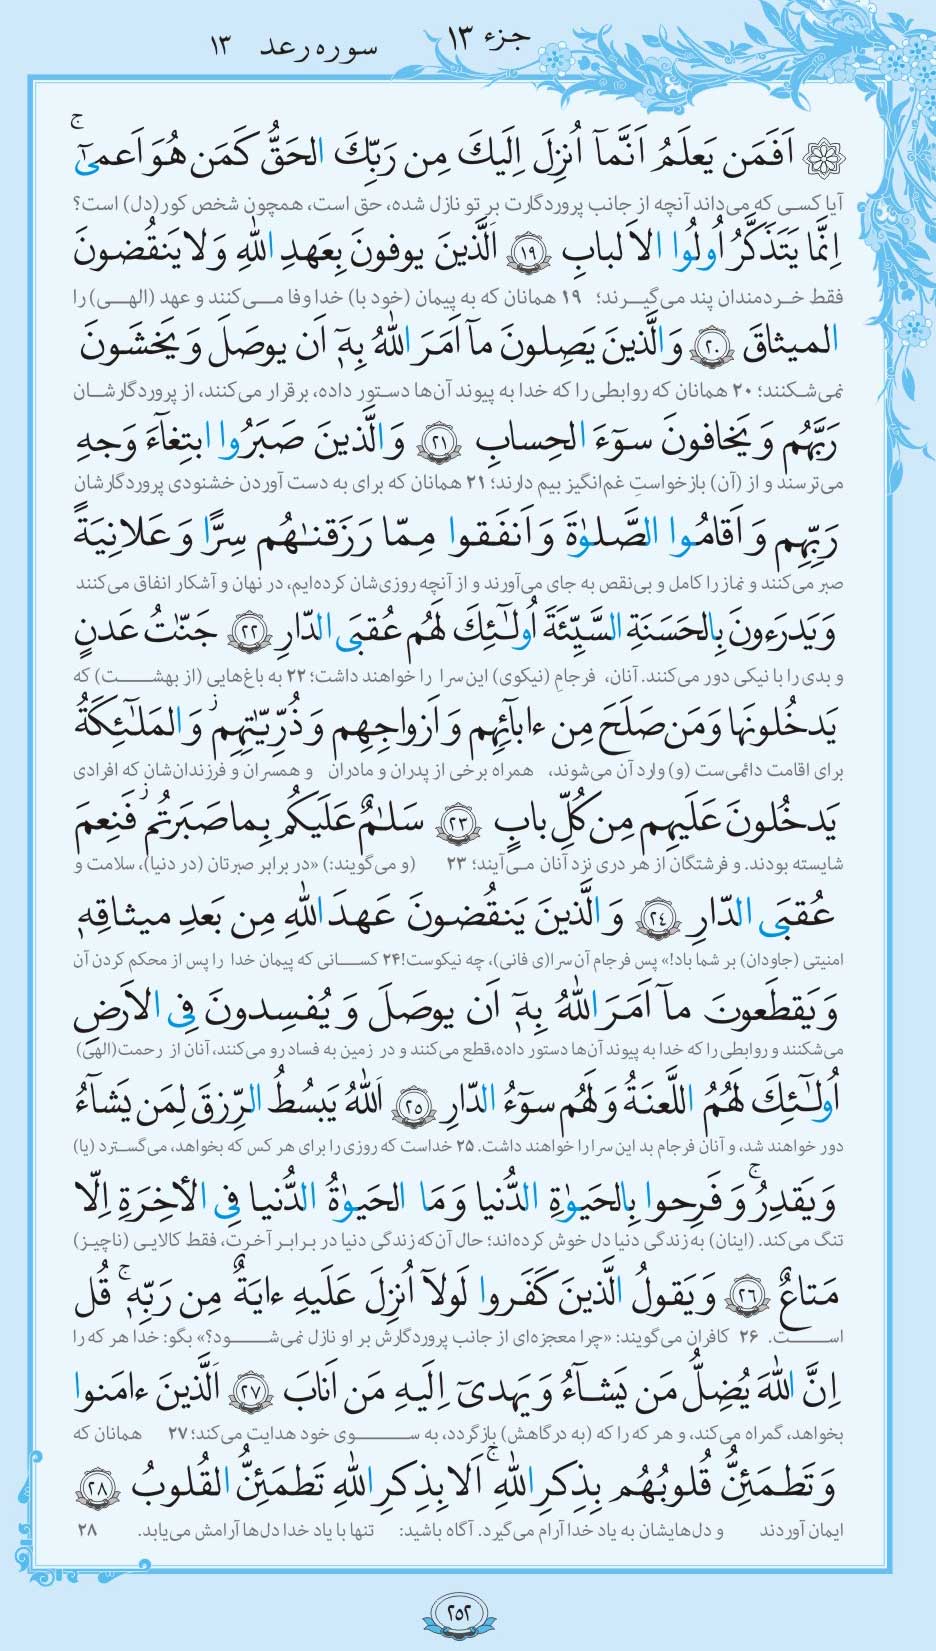 جزء ۱۳
سوره رعد ۱۳
اَفَمَن يَعلَمُ اَنَّمآ اُنزِلَ اِلَيكَ مِن رَبِّكَ الحَقُّ كَمَن هُوَ اَعمىٰٓ ۚ
آیا کسی که می‌داند آنچه از جانب پروردگارت بر تو نازل شده، حق است، همچون شخص کور(دل) است؟
اِنَّما يَتَذَكَّرُ اُولُوا الاَلبابِ ﴿١٩﴾ اَلَّذينَ يوفونَ بِعَهدِ اللّٰهِ وَ لا يَنقُضونَ
فقط خـردمندان پند می‌گیـرند؛ ۱۹ همانان که به پیمان (خود با) خدا وفا مـی‌کنند و عهد (الهـی) را
الميثاقَ ﴿٢٠﴾ وَ الَّذينَ يَصِلونَ مآ اَمَرَ اللّٰهُ بِهٖٓ اَن يوصَلَ وَ يَخشَونَ
نمی‌شـکنند؛ ۲۰ همانان که روابطی را که خدا به پیوند آن‌ها دستور داده، برقرار می‌کنند، از پروردگارشـان
رَبَّهُم وَ يَخافونَ سوٓءَ الحِسابِ ﴿٢١﴾ وَ الَّذينَ صَبَرُوا ابتِغآءَ وَجهِ
می‌ترسند و از (آن) بازخواستِ غم‌انگیز بیم دارند؛ ۲۱ همانان که برای به دست آوردن خشنودی پروردگارشان
رَبِّهِم وَ اَقامُوا الصَّلوٰةَ وَ اَنفَقوا مِمّا رَزَقنٰهُم سِرًّا وَ عَلانِيَةً
صبر می‌کنند و نماز را کامل و بی‌نقص به جای می‌آورند و از آنچه روزی‌شان کرده‌ایم، در نهان و آشکار انفاق می‌کنند
وَ يَدرَءونَ بِالحَسَنَةِ السَّيِّئَةَ اُولٰٓئِكَ لَهُم عُقبَى الدّارِ ﴿٢٢﴾ جَنّٰتُ عَدنٍ
و بدی را با نیکی دور می‌کنند. آنان، فرجامِ (نیکوی) این سرا را خواهند داشت؛ ۲۲ به باغ‌هایی (از بهشـــت) که
يَدخُلونَها وَ مَن صَلَحَ مِن ءابآئِهِم وَ اَزواجِهِم وَ ذُرِّيّٰتِهِم ۖ وَ المَلٰٓئِكَةُ
برای اقامت دائمی‌ست (و) وارد آن می‌شوند، همراه برخی از پدران و مادران و همسران و فرزندان‌شان که افرادی
يَدخُلونَ عَلَيهِم مِن كُلِّ بابٍ ﴿٢٣﴾ سَلٰمٌ عَلَيكُم بِما صَبَرتُم ۚ فَنِعمَ
شایسته بودند. و فرشتگان از هر دری نزد آنان مـی‌آیند؛ ۲۳ (و می‌گویند:) «در برابر صبرتان (در دنیا)، سلامت و
عُقبَى الدّارِ ﴿٢٤﴾ وَ الَّذينَ يَنقُضونَ عَهدَ اللّٰهِ مِن بَعدِ ميثاقِهٖ
امنیتی (جاودان) بر شما باد!» پس فرجام آن سرا(ی فانی)، چه نیکوست! ۲۴ کسـانی که پیمان خدا را پس از محکم کردن آن
وَ يَقطَعونَ مآ اَمَرَ اللّٰهُ بِهٖٓ اَن يوصَلَ وَ يُفسِدونَ فِى الاَرضِ
می‌شکنند و روابطی را که خدا به پیوند آن‌ها دستور داده،قطع می‌کنند و در زمین به فساد رو می‌کنند، آنان از رحمت(الهی)
اُولٰٓئِكَ لَهُمُ اللَّعنَةُ وَ لَهُم سوٓءُ الدّارِ ﴿٢٥﴾ اَللّٰهُ يَبسُطُ الرِّزقَ لِمَن يَشآءُ
دور خواهند شد، و آنان فرجام بد این سرا را خواهند داشت. ۲۵ خداست که روزی را برای هر کس که بخواهد، می‌گسـترد (یا)
وَ يَقدِرُ ۚ وَ فَرِحوا بِالحَيوٰةِ الدُّنيا وَ مَا الحَيوٰةُ الدُّنيا فِى الأخِرَةِ اِلّا
تنگ می‌کند. (اینان) به زندگی دنیا دل خوش کرده‌اند؛ حال آن‌که زندگی دنیا در بـرابـر آخـرت، فقط کالایـی (ناچیـز)
مَتاعٌ ﴿٢٦﴾ وَ يَقولُ الَّذينَ كَفَروا لَولآ اُنزِلَ عَلَيهِ ءايَةٌ مِن رَبِّهٖ ۚ قُل
اســـت. ۲۶ کافران می‌گویند: «چرا معجزه‌ای از جانب پروردگارش بر او نازل نمی‌شـــود؟» بگو: خدا هر که را
اِنَّ اللّٰهَ يُضِلُّ مَن يَشآءُ وَ يَهدىٓ اِلَيهِ مَن اَنابَ ﴿٢٧﴾ اَلَّذينَ ءامَنوا
بخواهد، گمراه می‌کند، و هر که را که (به درگاهش) بازگردد، به ســـوی خود هدایت می‌کند؛ ۲۷ همانان که
وَ تَطمَئِنُّ قُلوبُهُم بِذِكرِ اللّٰهِ ۗ اَلا بِذِكرِ اللّٰهِ تَطمَئِنُّ القُلوبُ ﴿٢٨﴾
ایمان آوردند و دل‌هایشان به یاد خدا آرام می‌گیرد. آگاه باشید: تنها با یاد خدا دل‌ها آرامش می‌یابد. ۲۸
۲۵۲